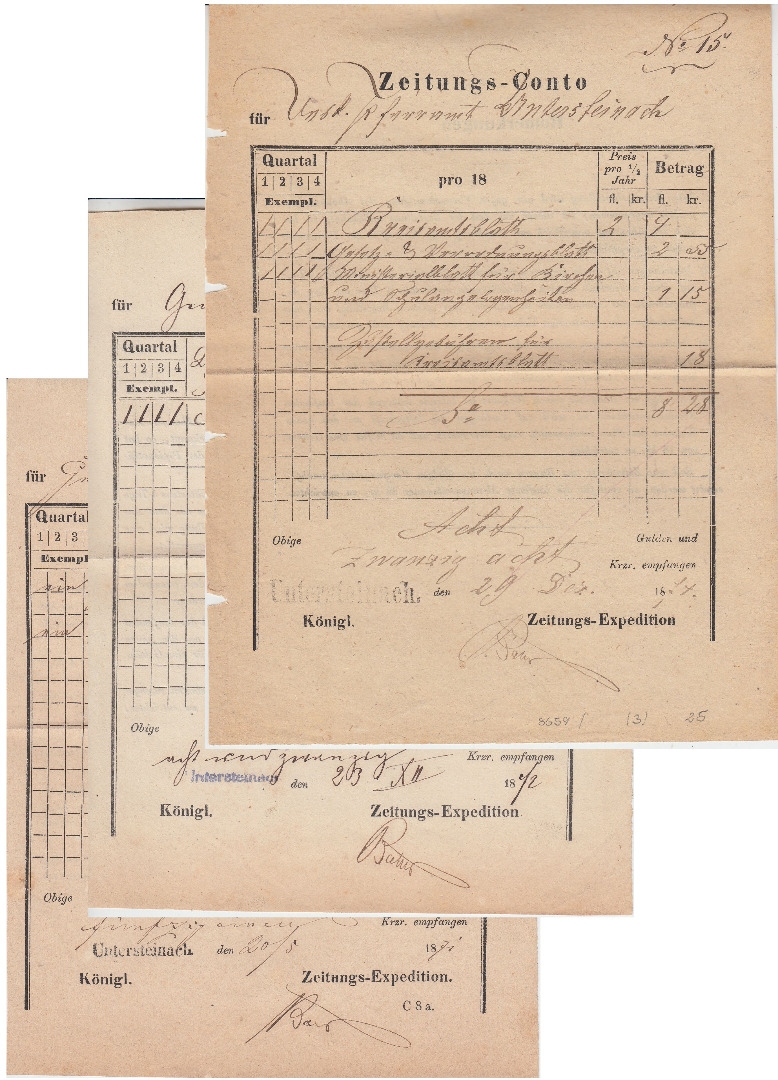 No 15.
Zeitungs-Conto
für Prot. Pfarramt Untersteinach
Quartal
1 2 3 4
Exempl.
pro 18
Preis
pro 1/2
Jahr
fl. kr.
Betrag
fl. kr.
1 1 1 1 Kreisamtsblatt 2 4
1 1 1 1 Gesetz- & Verordnungsblatt 2
1 1 1 1 Ministerialblatt für Kirchen
und Schulangelegenheiten 1 15
Zustellgebühren für
Kreisamtsblatt 18
Sa 8 28
Obige Acht Gulden und
zwanzig acht Krzr. empfangen
Untersteinach. den 29 Dez. 1874.
Königl. Zeitungs-Expedition
8659 / (3) 25
für
Quartal
1 2 3 4
Exempl.
1 1 1 1
Obige
acht und zwanzig Krzr. empfangen
Untersteinach den 23 XII 1872
Königl. Zeitungs-Expedition
für
Quartal
1 2 3
Exempl
ein
ein
Obige
fünfzig einen Krzr. empfangen
Untersteinach. den 20/5 1871
Königl. Zeitungs-Expedition.
C 8 a.